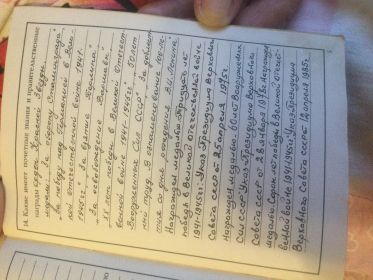 14. Какие имеет почетные звания и правительственные
награды орден Красной Звезды
медали „за оборону Сталинграда“
„за победу над Германией в Вели-
кой отечественной войне 1941-
1945 гг“ „Взятие Берлина“
„за освобождение Варшавы“
„XX лет победы в Великой Отечест
венной войне 1941-1945гг“ „50 лет
Вооруженных Сил СССР“ „За доблест
ный труд в ознаменование 100 ле-
тия со дня рождения В.И. Ленина“
Награжден медалью Тридцать лет
победы в Великой отечественной войне
1941-1945гг Указ Президиума Верховного
Совета СССР от 25 апреля 1975г.
Награжден медалью 60 лет Вооруженных
Сил СССР Указ Президиума Верховного
Совета СССР от 28 января 1978г. Награжден
медалью Сорок лет победы в Великой отечест-
венной войне 1941-1945гг Указ Президиума
Верховного Совета СССР от 12 апреля 1985г.